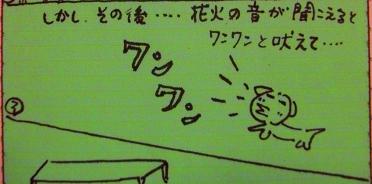 しかし、その後‥‥花火の音が聞こえると
ワンワンと吠えて‥‥
ワン
ワン
③